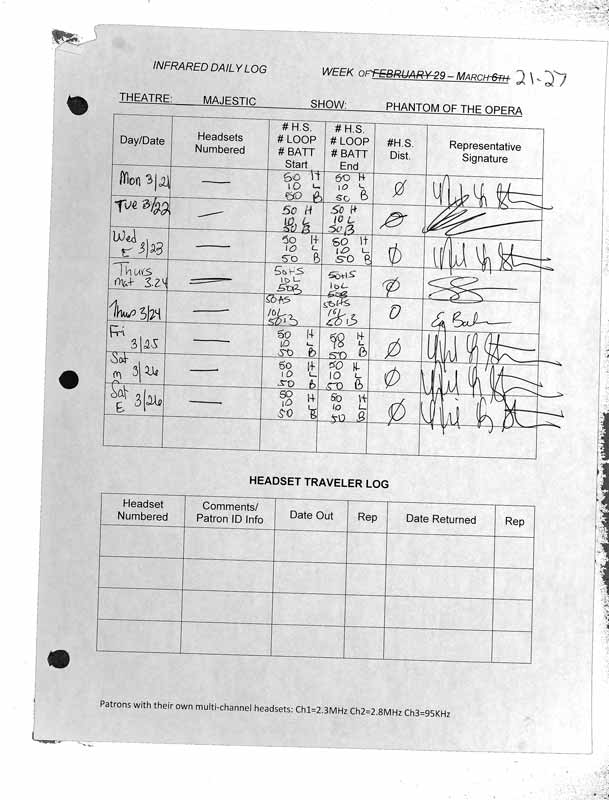 INFRARED DAILY LOG WEEK OF FEBRUARY 29 – MARCH 6TH 21-27
THEATRE: MAJESTIC SHOW: PHANTOM OF THE OPERA
Day/Date Headsets Numbered # H.S. # LOOP # BATT Start # H.S. # LOOP # BATT End #H.S. Dist. Representative Signature
Mon 3/21 — 50 H 10 L 50 B 50 H 10 L 50 B Ø
Tue 3/22 — 50 H 10 L 50 B 50 H 10 L 50 B Ø
Wed E 3/23 — 50 H 10 L 50 B 50 H 10 L 50 B Ø
Thurs mat 3.24 — 50HS 10L 50B 50HS 10L 50B Ø
Thurs 3/24 — 50HS 10L 50B 50HS 10L 50B 0
Fri 3/25 — 50 H 10 L 50 B 50 H 10 L 50 B Ø
Sat m 3/26 — 50 H 10 L 50 B 50 H 10 L 50 B Ø
Sat E 3/26 — 50 H 10 L 50 B 50 H 10 L 50 B Ø
HEADSET TRAVELER LOG
Headset Numbered Comments/ Patron ID Info Date Out Rep Date Returned Rep
Patrons with their own multi-channel headsets: Ch1=2.3MHz Ch2=2.8MHz Ch3=95KHz